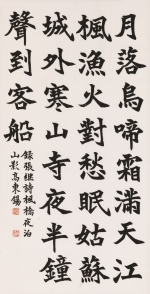 月落烏啼霜滿天江
楓漁火對愁眠姑蘇
城外寒山寺夜半鐘
聲到客船
錄張繼詩楓橋夜泊
山影高東錫